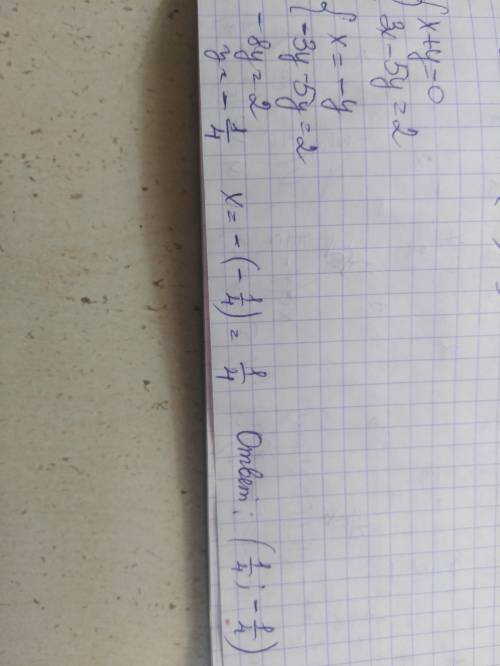 { x+y=0
3x-5y=2
{ x=-y
-3y-5y=2
-8y=2
y=-1/4 x=-(-1/4)=1/4 Ответ: (1/4; -1/4)